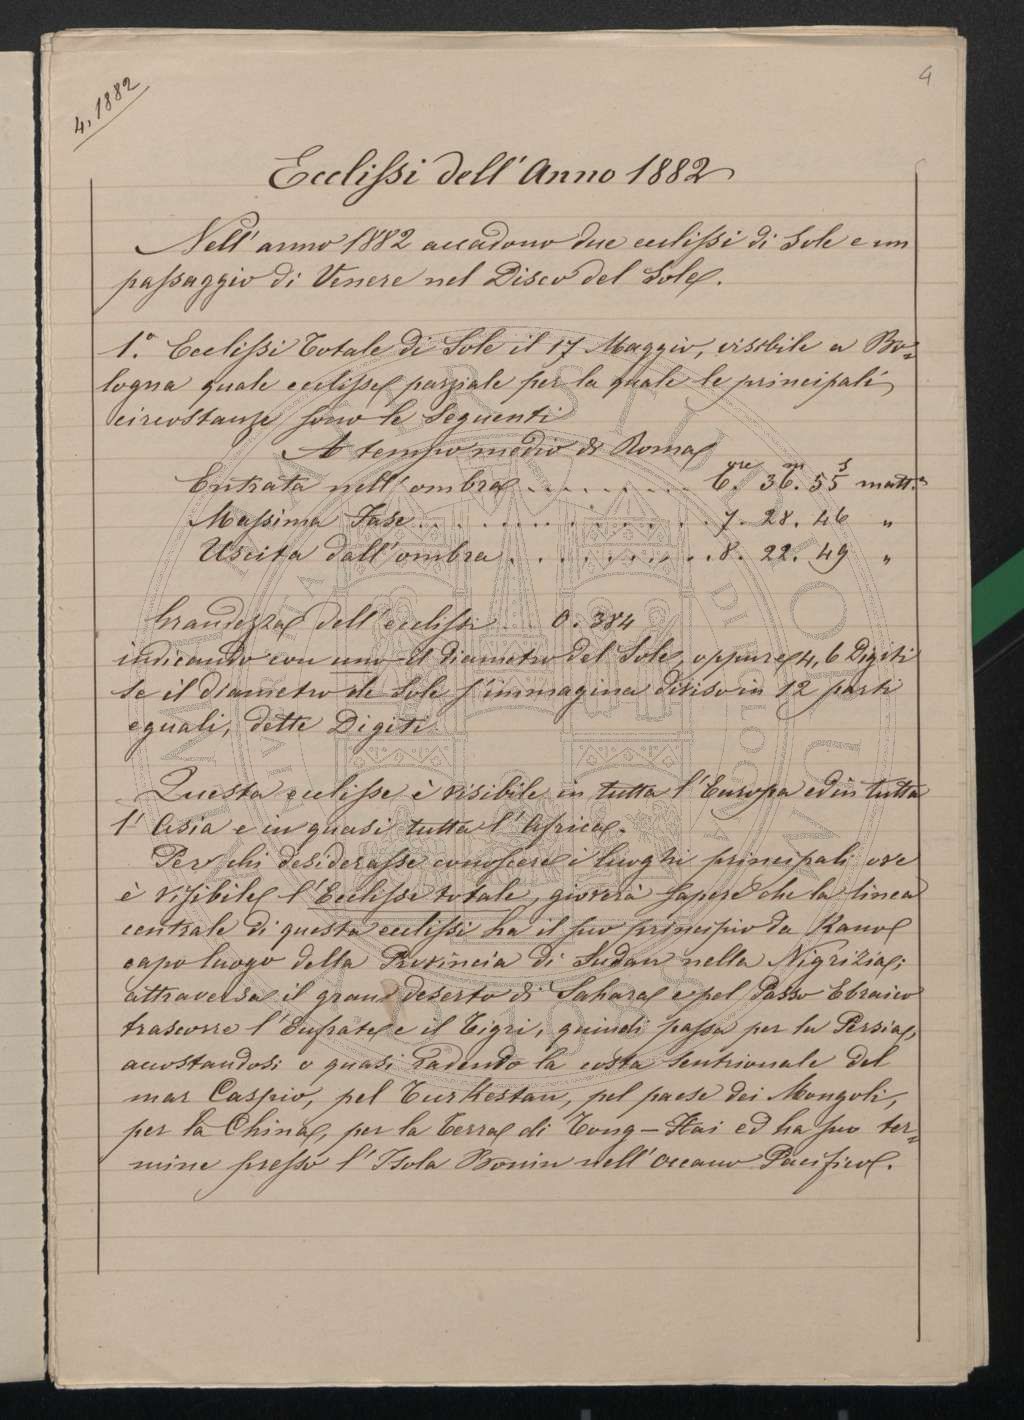 4
4, 1882
Ecclissi dell'Anno 1882
Nell'anno 1882 accadono due ecclissi di Sole e un
passaggio di Venere nel Disco del Sole.
1.º Ecclissi Totale di Sole il 17 Maggio, visibile a Bo=
logna quale ecclisse parziale per la quale le principali
circostanze sono le seguenti
A tempo medio di Roma
Entrata nell'ombra . . . . . . . . . 6.ore 36.m 55s matt.ª
Massima Fase . . . . . . . . . . . . . 7. 28. 46 "
Uscita dall'ombra . . . . . . . . . . 8. 22. 49 "
Grandezza dell'ecclissi . . 0.384
indicando con uno il diametro del Sole, oppure 4,6 Digiti
se il diametro de Sole s'immagina diviso in 12 parti
eguali, dette Digiti.
Questa ecclisse è visibile in tutta l'Europa ed in tutta
l'Asia e in quasi tutta l'Africa.
Per chi desiderasse conoscere i luoghi principali ove
è visibile l'Ecclisse totale, gioverà sapere che la linea
centrale di questa ecclissi ha il suo principio da Kano
capo luogo della Provincia di Sudan nella Nigrizia;
attraversa il gran deserto di Sahara e pel Passo Ebraico
trascorre l'Eufrate e il Tigri, quindi passa per la Persia,
accostandosi o quasi radendo la costa sentrionale del
mar Caspio, pel Turkestan, pel paese dei Mongoli,
per la China, per la Terra di Tong-Hai ed ha suo ter=
mine presso l'Isola Bonin nell'Oceano Pacifico.